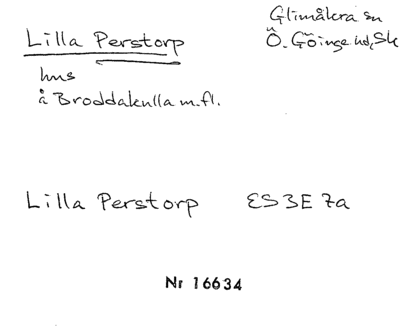 Lilla Perstorp
Glimåkra sn
Ö. Göinge hd, Sk
hus
å Broddakulla m.fl.
Lilla Perstorp ES 3E 7a
Nr 16634